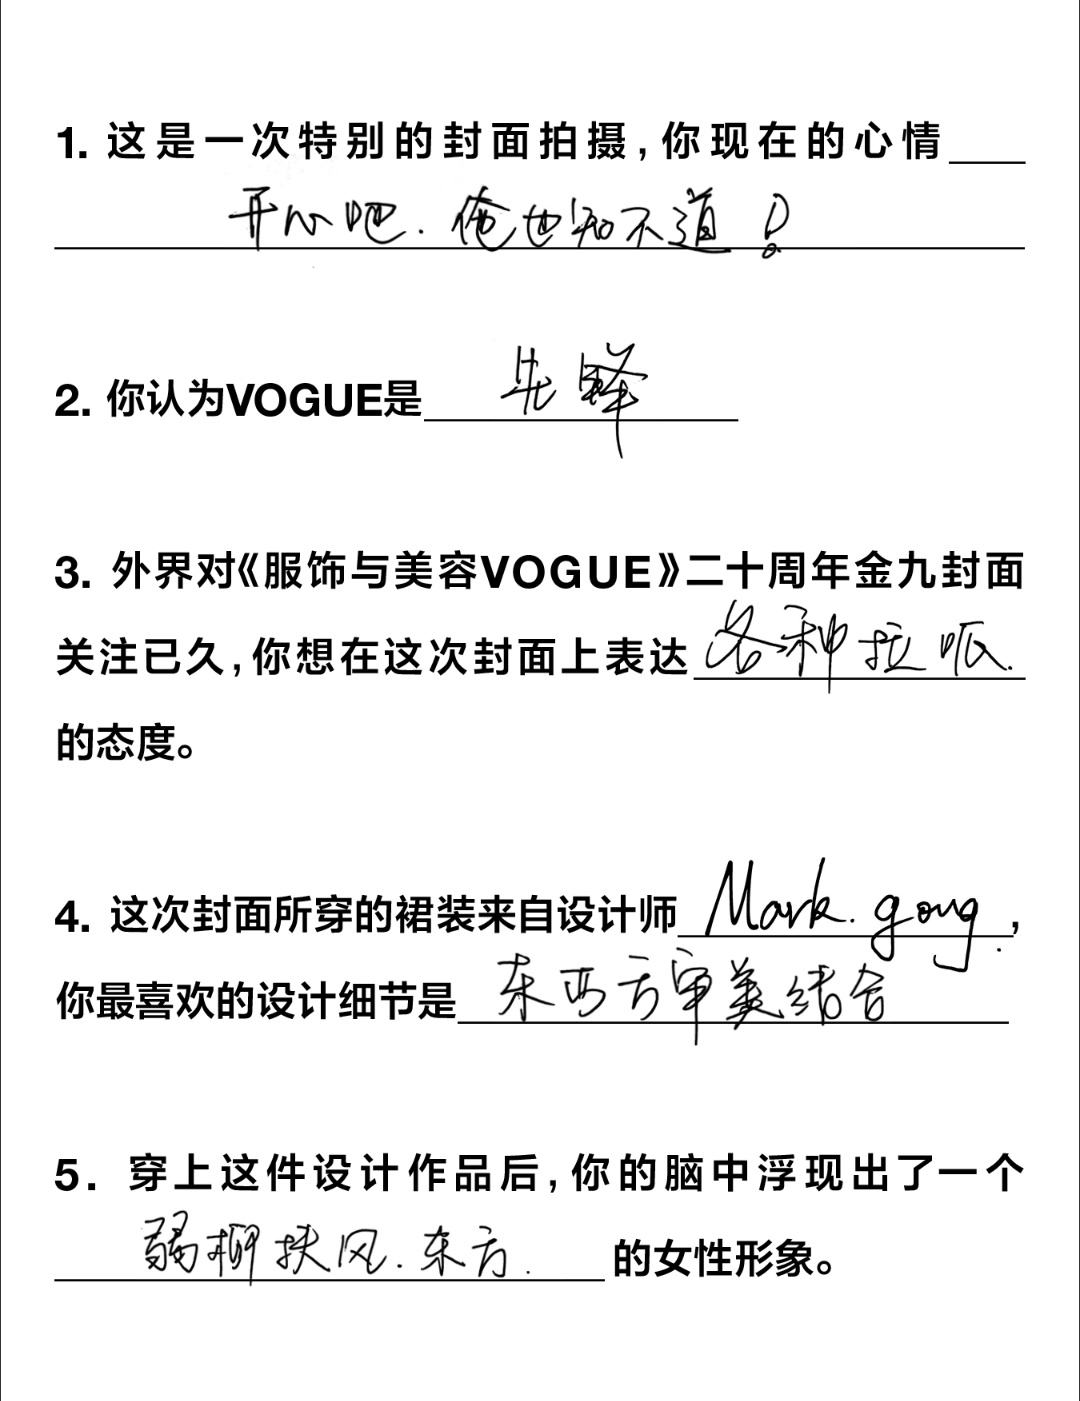 1. 这是一次特别的封面拍摄,你现在的心情
开心吧.俺也知不道!
2. 你认为VOGUE是先锋
3. 外界对《服饰与美容VOGUE》二十周年金九封面
关注已久,你想在这次封面上表达各种拉呱.
的态度。
4. 这次封面所穿的裙装来自设计师Mark.gong.,
你最喜欢的设计细节是东西方审美结合
5. 穿上这件设计作品后,你的脑中浮现出了一个
弱柳扶风.东方.的女性形象。